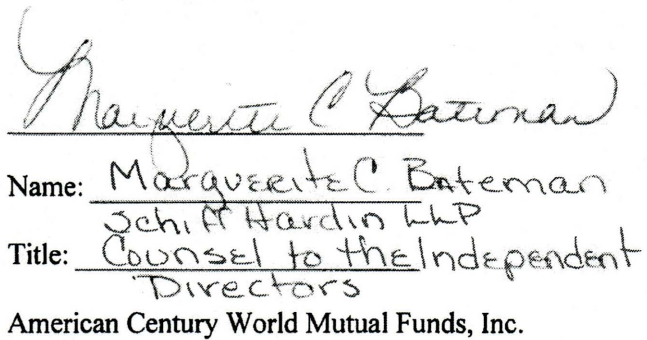 Marguerite C Bateman
Name: Marguerite C. Bateman
Schiff Hardin LLP
Title: Counsel to the Independent
Directors
American Century World Mutual Funds, Inc.